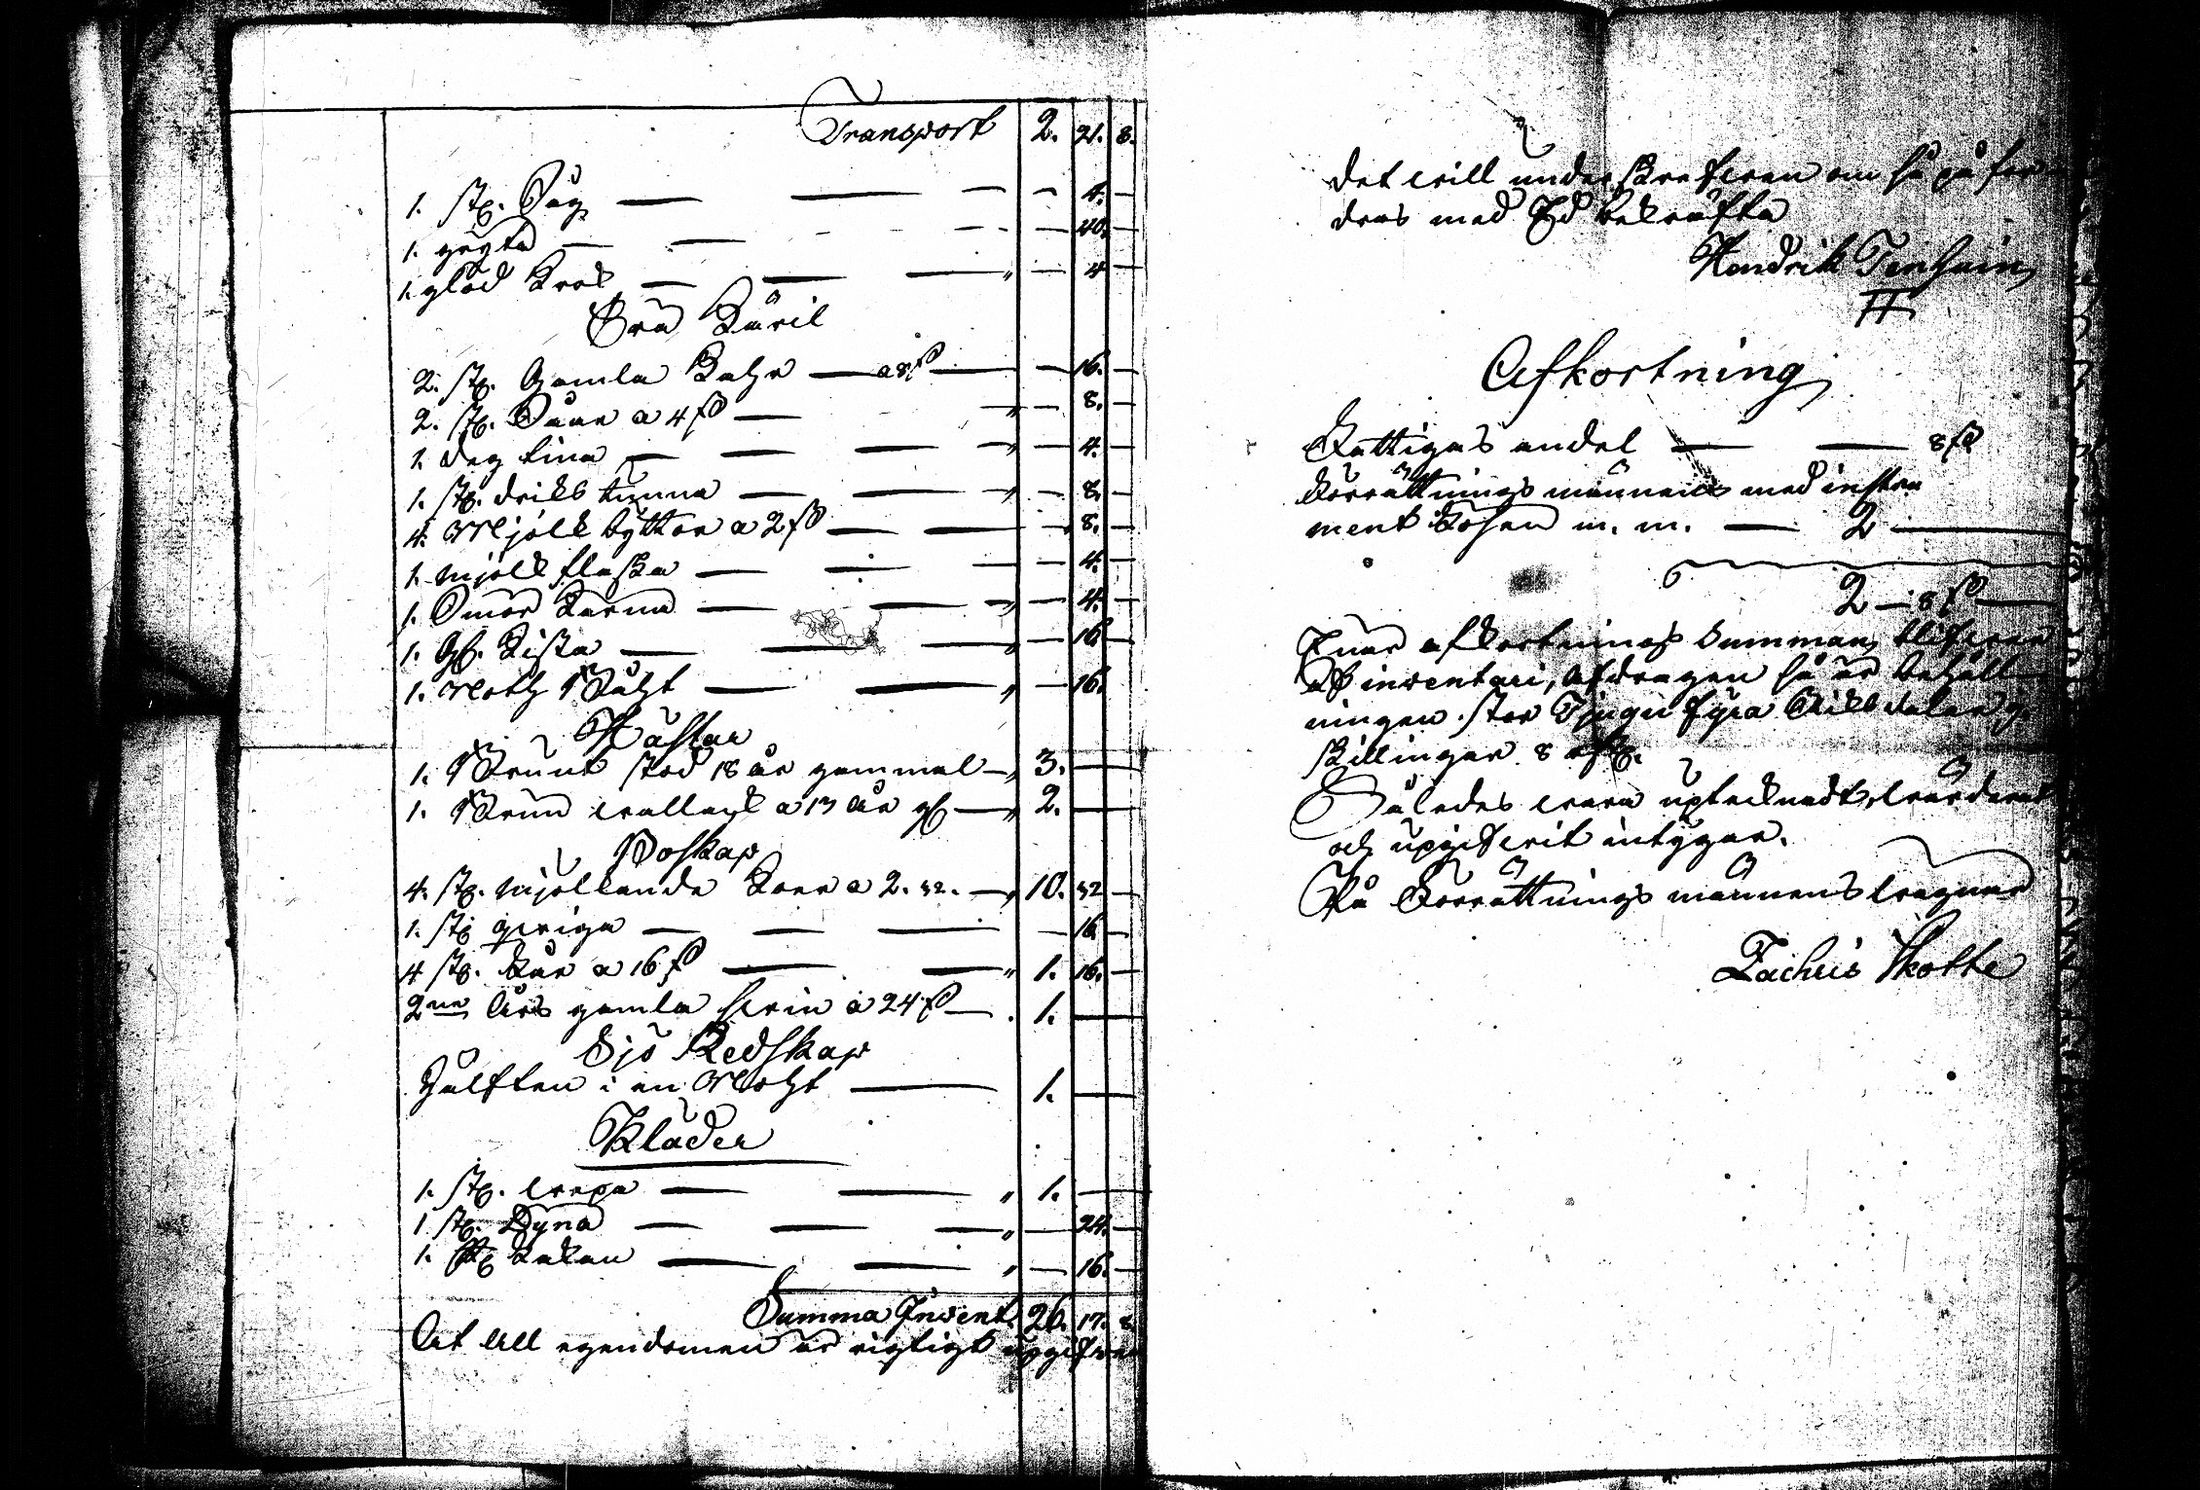 Transport 2. 21. 8.
1. st. Såg — — — 4. —
1. gryta — — — — 40. —
1. glöd krok — — — " — 4 —
Trä Käril
2. st. Gamla Balje — a 8 s — — 16. —
2. st. Såar a 4 s — — 8. —
1. deg tina — — — — 4. —
1. st. dricks tunna — — — 8. —
4. Mjölk byttor a 2 s — — — 8. —
1. mjölk flaska — — — 4. —
1. Smör kärna — — — 4. —
1. gl. Kista — — " — 16
1. Noth Båht — — " — 16.
Hästar
1. Brunt stod 18 år gammal — " 3. —
1. Brun wallack a 13 år gl — " 2. —
Boskap
4. st. mjölkande Koer a 2. 32. — " 10. 32 —
1. st qwiga — — — — 16 —
4 st. får a 16 s — — " 1. 16. —
2ne års gamla swin a 24 s — . 1. —
Sjö Redskap
Hälften i en Noht — 1. —
Kläder
1. st. wepa — — " 1. —
1 st. Dyna — — — " — 24. —
1. st Lakan — — " — 16. —
Summa Invent. 26. 17. 8
At All egendomen är rigtigt upgifwen
det will underskrefwen om så på for
dras med Ed bekräfta
Hendrik
Afkortning
Fattigas andel — — 8 s
Förrättnings männens med instru
ment lösen m. m. — 2 —
2 — 8 s —
När afkortnings Summan, blifwer
af inventari, afdragen så är behåll
ningen stor Tjugu fyra Riksdaler 9
skillingar 8
Således wara uptecknadt, wärderat
och upgifwit intygar.
På Förrättnings männens wägnar
Zachris Skotte